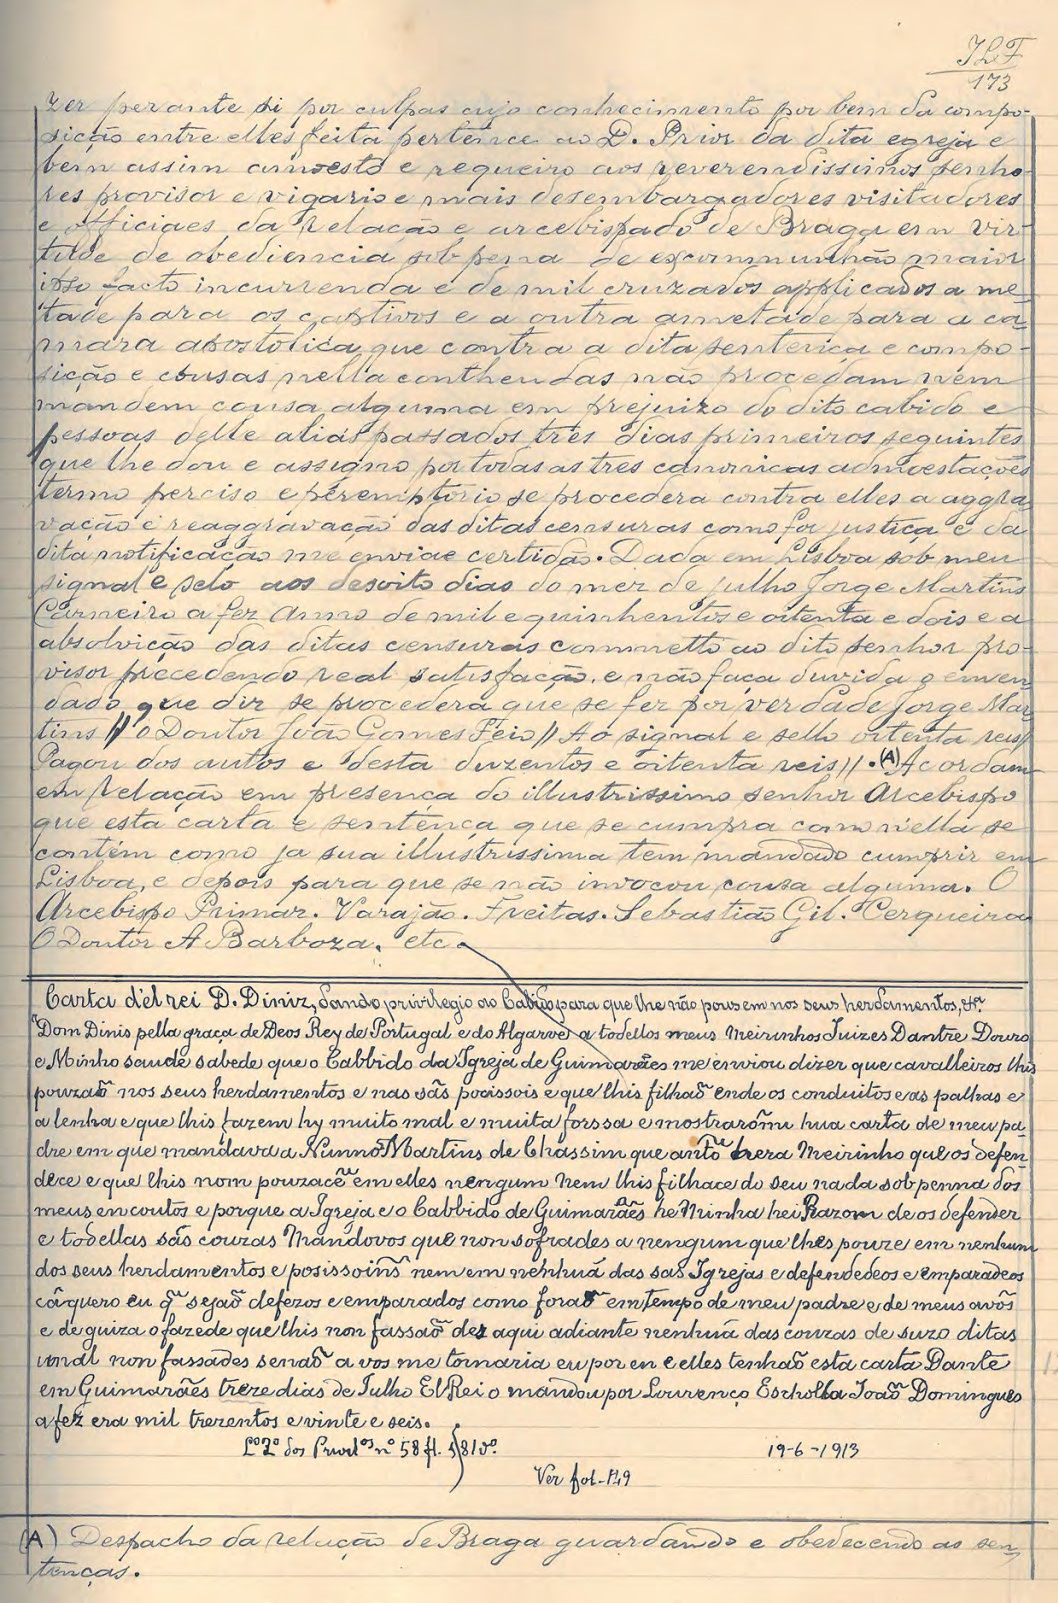 JLF
173
zer perante si por culpas cujo conhecimento por bem da compo-
sição entre elles feita pertence ao D. Prior da dita egreja e
bem assim amoesto e requeiro aos reverendissimos senho-
res provisor e vigario e mais desembargadores visitadores
e officiaes da relação e arcebispado de Braga em vir-
tude de obediencia sob pena de excommunhão maior
ipso facto incurrenda e de mil cruzados applicados a me-
tade para os captivos e a outra ametade para a ca-
mara apostolica que contra a dita sentença e compo-
sição e cousas nella contheudas não procedam nem
mandem cousa alguma em prejuizo do dito cabido e
pessoas delle aliás passados tres dias primeiros seguintes
que lhe dou e assigno por todas as tres canonicas admoestações
termo perciso e peremptorio se procederá contra elles a aggra-
vação e reaggravação das ditas censuras como for justiça e da
dita notificação me enviae certidão. Dada em Lisboa sob meu
signal e selo aos desoito dias do mez de julho Jorge Martins
Carneiro a fez Anno de mil e quinhentos e oitenta e dois e a
absolvição das ditas censuras commetto ao dito senhor pro-
visor precedendo real satisfação, e não faça duvida o emen-
dado que diz se procederá que se fez por verdade Jorge Mar-
tins // o Doutor João Gomes Feio // Ao signal e sello oitenta reis //
Pagou dos autos e desta duzentos e oitenta reis //. (A) Acordam
em relação em presença do illustrissimo senhor Arcebispo
que esta carta e sentença que se cumpra como n'ella se
contém como ja sua illustrissima tem mandado cumprir em
Lisboa, e depois para que se não invocou cousa alguma. O
Arcebispo Primaz. Varajão. Freitas. Sebastião Gil. Cerqueira
O Doutor A Barboza. etc.
Carta d'el rei D. Diniz, dando privilegio ao Cabido para que lhe não pousem nos seus herdamentos, &ª.
"Dom Dinis pella graça de Deos Rey de Portugal e do Algarve a todellos meus Meirinhos Juizes Dantre Douro
e Minho saude sabede que o Cabbido da Igreja de Guimarães me enviou dizer que cavalleiros lhis
pouzaõ nos seus herdamentos e nas sãs pocissois e que lhis filhaõ ende os conduitos e as palhas e
a lenha e que lhis fazem hy muito mal e muita forssa e mostrarõmi hua carta de meu pa-
dre em que mandava a Nunno Martins de Chassim que antõ hera Meirinho que os defen-
dece e que lhis nom pouzacẽ em elles nengum nem lhis filhace do seu nada sob penna dos
meus encoutos e porque a Igreja e o Cabbido de Guimarães he Minha hei Razom de os defender
e todellas sás couzas Mandovos que non sofrades a nengum que lhes pouze em nenhum
dos seus herdamentos e posissoins nem em nenhuá das sas Igrejas e defendedeos e emparadeos
cá quero eu q̃ sejaõ defezos e emparados como foraõ em tempo de meu padre e de meus avós
e de guiza o fazede que lhis non fassaõ des aqui adiante nenhuá das couzas de suzo ditas
unal non fassades senaõ a vos me tornaria eu por en e elles tenhaõ esta carta Dante
em Guimarães treze dias de Julho El Rei o mandou por Lourenço Escholla Joaõ Domingues
a fez era mil trezentos e vinte e seis.
Lº 2º dos Privilos nº 58 fl. 81 vº. 19-6-1913
Ver fol-149
(A) Despacho da relação de Braga guardando e obedecendo as sen-
tenças.